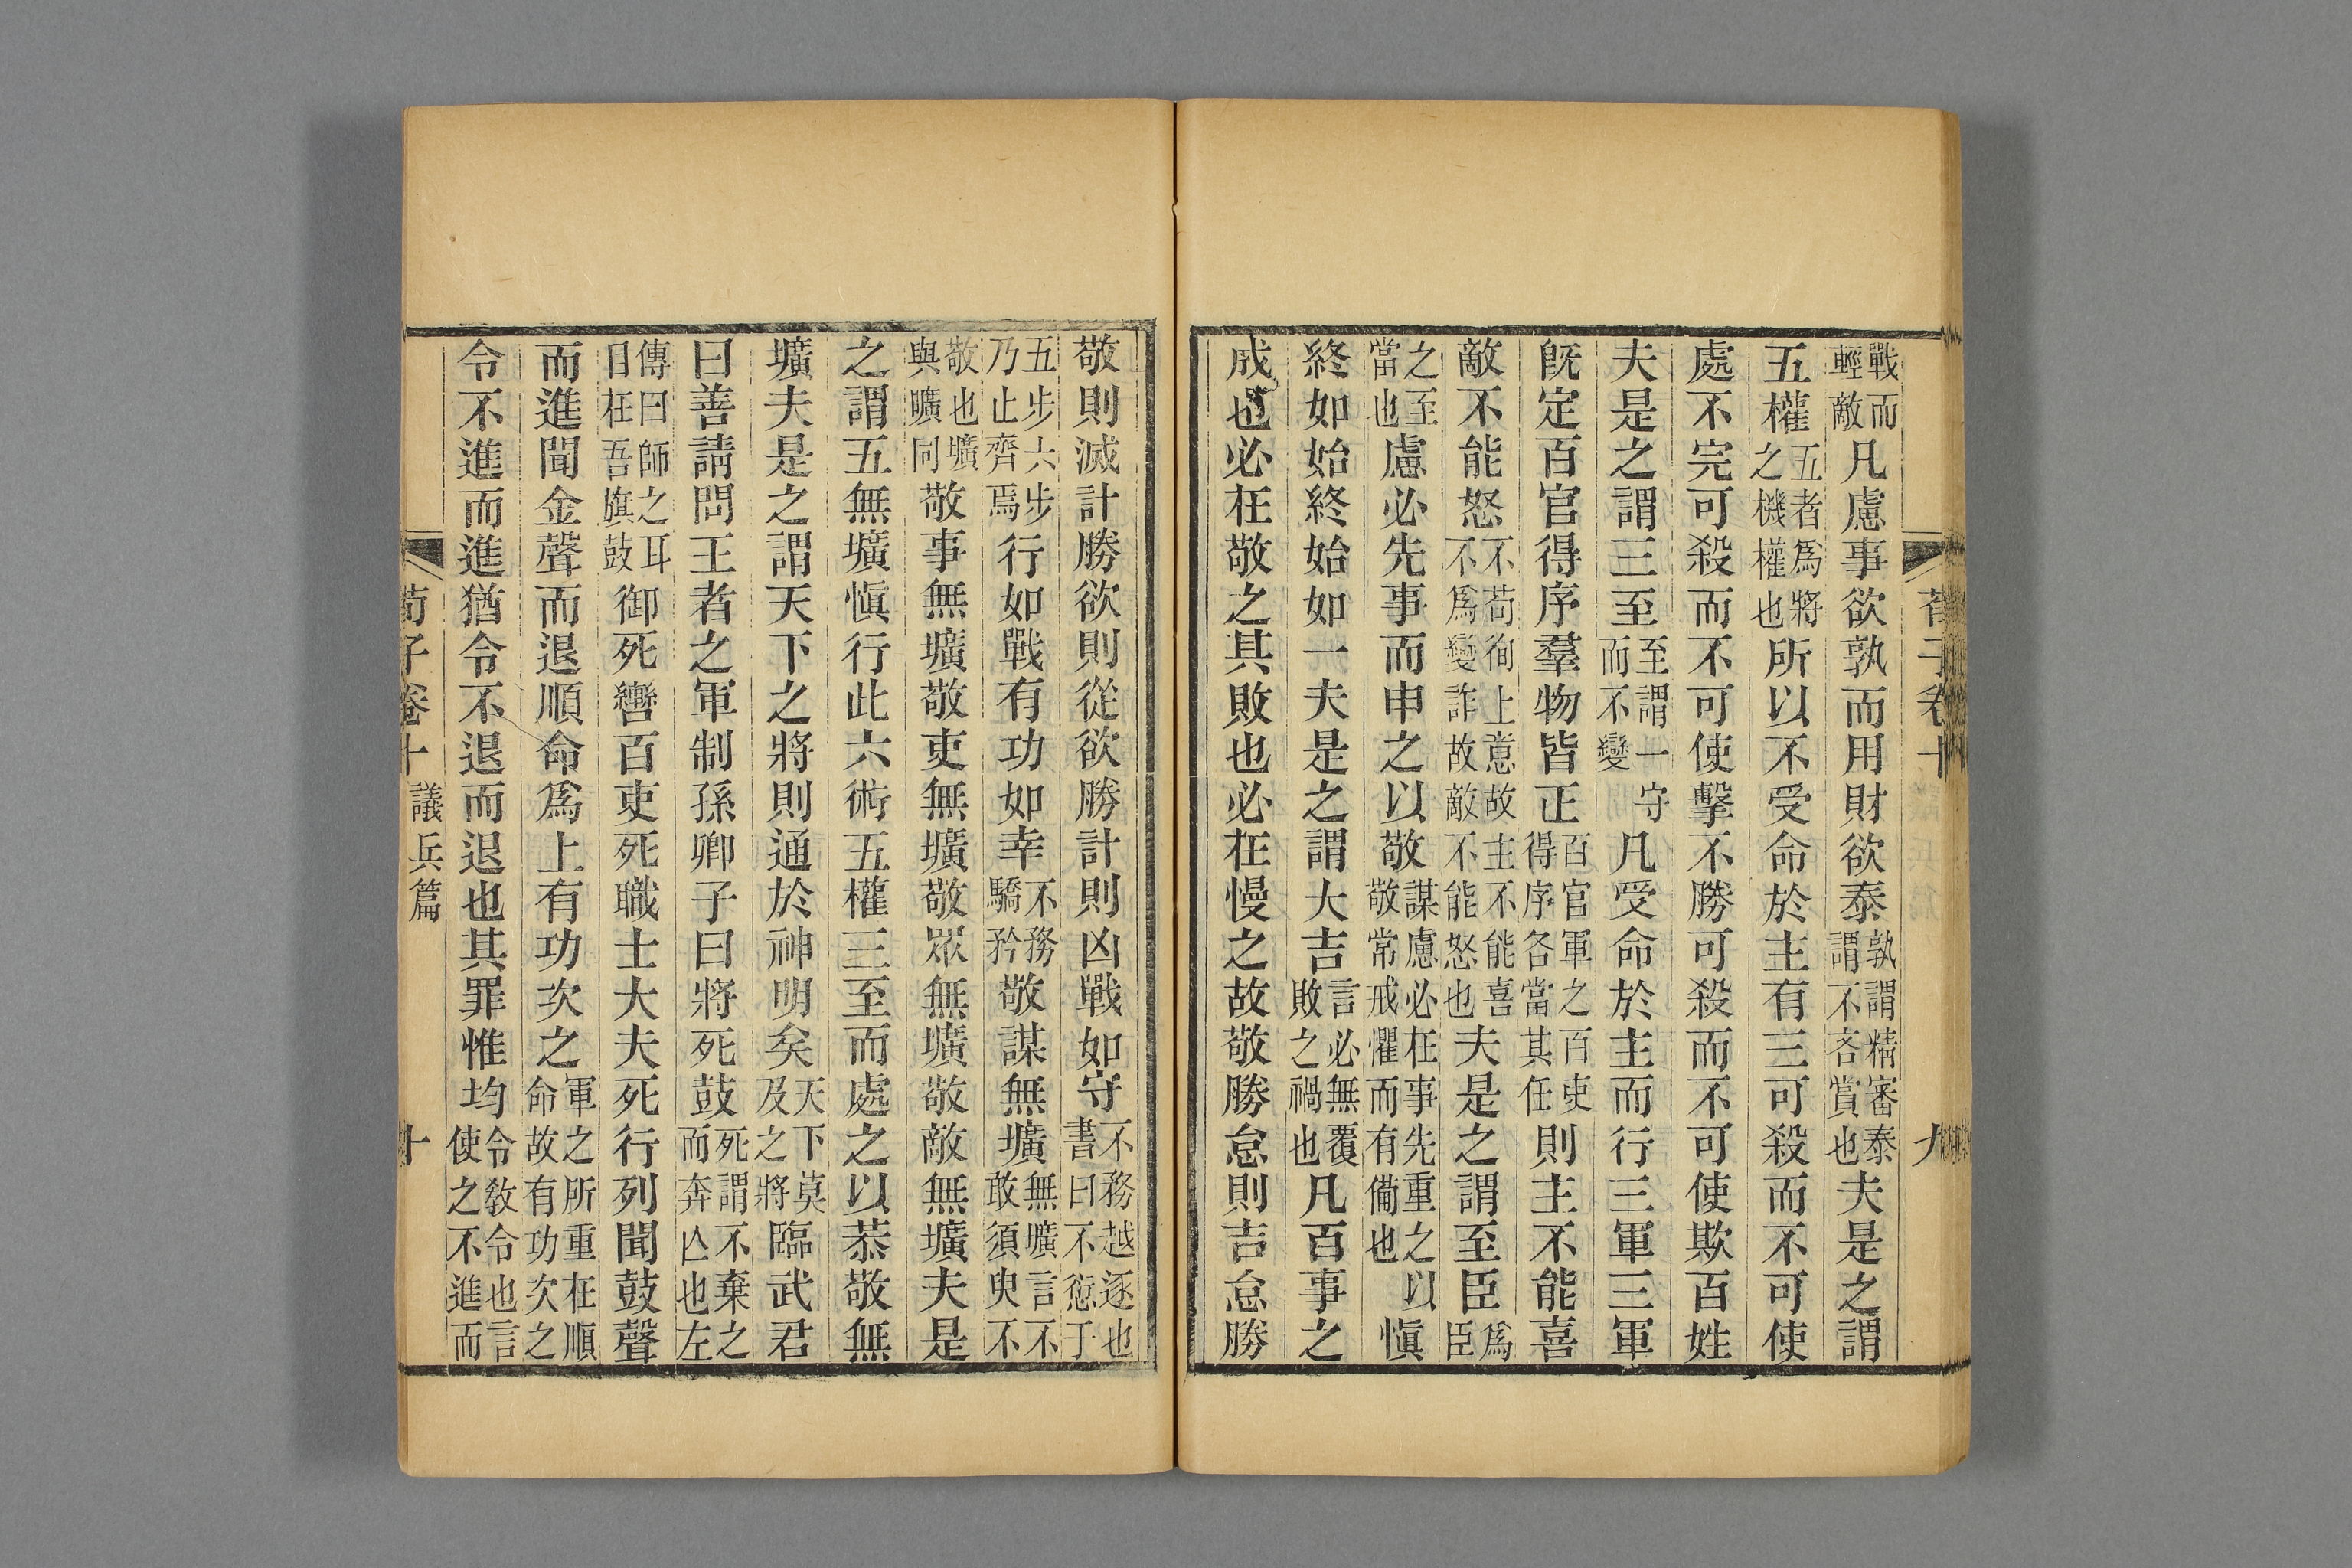 荀子卷十　九
戰而輕敵凡慮事欲孰而用財欲泰孰謂精審泰謂不吝賞也夫是之謂
五權五者爲將之機權也所以不受命於主有三可殺而不可使
處不完可殺而不可使擊不勝可殺而不可使欺百姓
夫是之謂三至至謂一守而不變凡受命於主而行三軍三軍
旣定百官得序羣物皆正百官軍之百吏得序各當其任則主不能喜
敵不能怒不苟徇上意故主不能喜不爲變詐故敵不能怒也夫是之謂至臣爲臣
之至當也慮必先事而申之以敬謀慮必在事先重之敬常戒懼而有僃也以愼
終如始終始如一夫是之謂大吉言必無覆敗之禍也凡百事之
成也必在敬之其敗也必在慢之故敬勝怠則吉怠勝
敬則滅計勝欲則從欲勝計則凶戰如守不務越逐也書曰不愆于
五步六步乃止齊焉行如戰有功如幸不務驕矜敬謀無壙無壙言不敢須臾不
敬也壙與曠同敬事無壙敬吏無壙敬眾無壙敬敵無壙夫是
之謂五無壙愼行此六術五權三至而處之以恭敬無
壙夫是之謂天下之將則通於神明矣天下莫及之將臨武君
曰善請問王者之軍制孫卿子曰將死鼓死謂不棄之而奔亾也左
傳曰師之耳目在吾旗鼓御死轡百吏死職士大夫死行列聞鼓聲
而進聞金聲而退順命爲上有功次之軍之所重在順命故有功次之
令不進而進猶令不退而退也其罪惟均令敎令也言使之不進而
荀子卷十　議兵篇　十